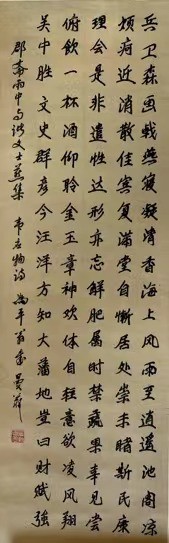 兵卫森画戟燕寝凝清香海上风雨至逍遥池阁凉
烦疴近消散佳宾复满堂自惭居处崇未睹斯民康
理会是非遣性达形亦忘鲜肥属时禁蔬果幸见尝
俯饮一杯酒仰聆金玉章神欢体自轻意欲凌风翔
吴中胜文史群彦今汪洋方知大藩地岂曰财赋强
郡斋雨中与诸文士燕集 韦应物诗